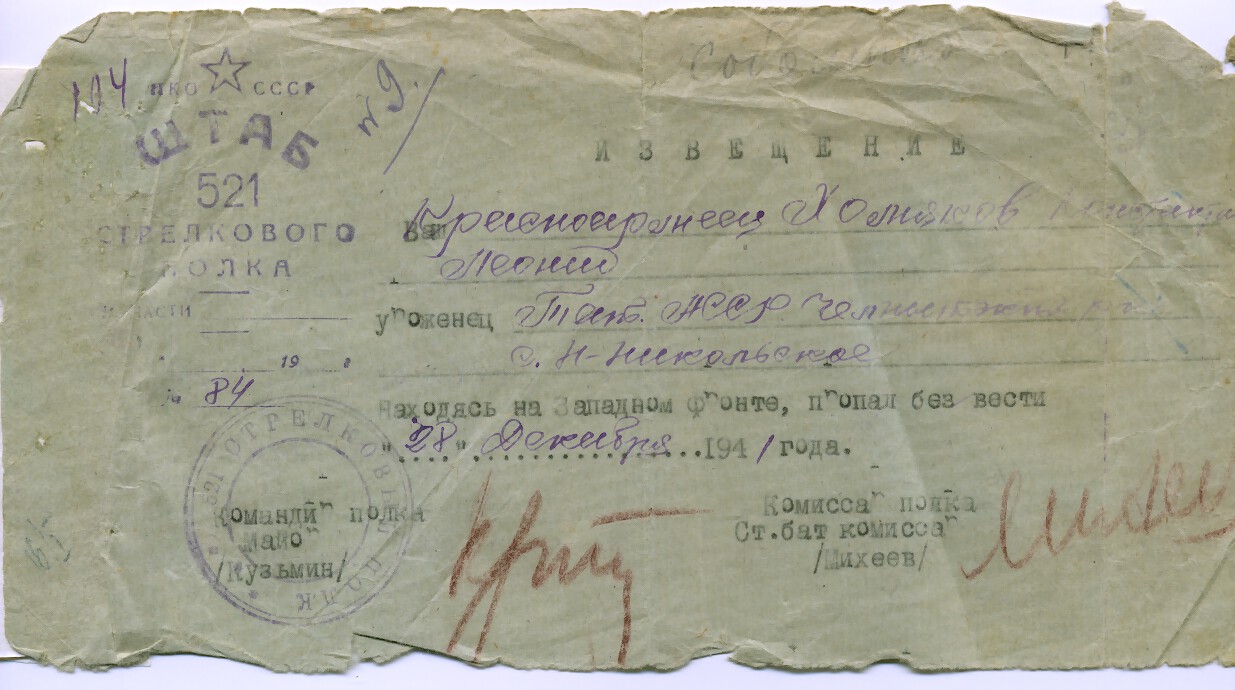 194 НКО СССР № 9.
ШТАБ
521
СТРЕЛКОВОГО
ПОЛКА
ЧАСТИ
19 г
№ 84
ИЗВЕЩЕНИЕ
Ваш Красноармеец Холмяков
Леонид
уроженец Тат. АССР
с. Н-Никольское
Находясь на Западном фронте, пропал без вести
"28" Декабря 1941 года.
521 СТРЕЛКОВЫЙ ПОЛК
Командир полка
Майор
/Кузьмин/
Комиссар полка
Ст.бат комиссар
/Михеев/